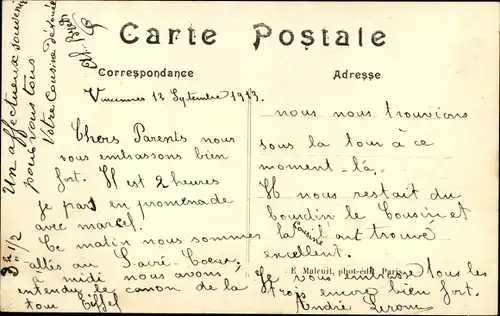 Carte Postale
Correspondance
Adresse
Vincennes 12 Septembre 1913.
Chers Parents nous
vous embrassons bien
fort. Il est 2 heures
je pars en promenade
avec marcel.
Ce matin nous sommes
allés au Sacré-Coeur,
à midi nous avons
entendu le canon de la
tour Eiffel
nous nous trouvions
sous la tour à ce
moment-là.
Il nous restait du
boudin le Cousin et
la Cousine l'ont trouvé
excellent.
Je vous embrasse tous les
trois encore bien fort.
André
E. Malcuit, phot-édit, Paris
Un affectueux souvenir
pour vous tous
Votre Cousine dévouée